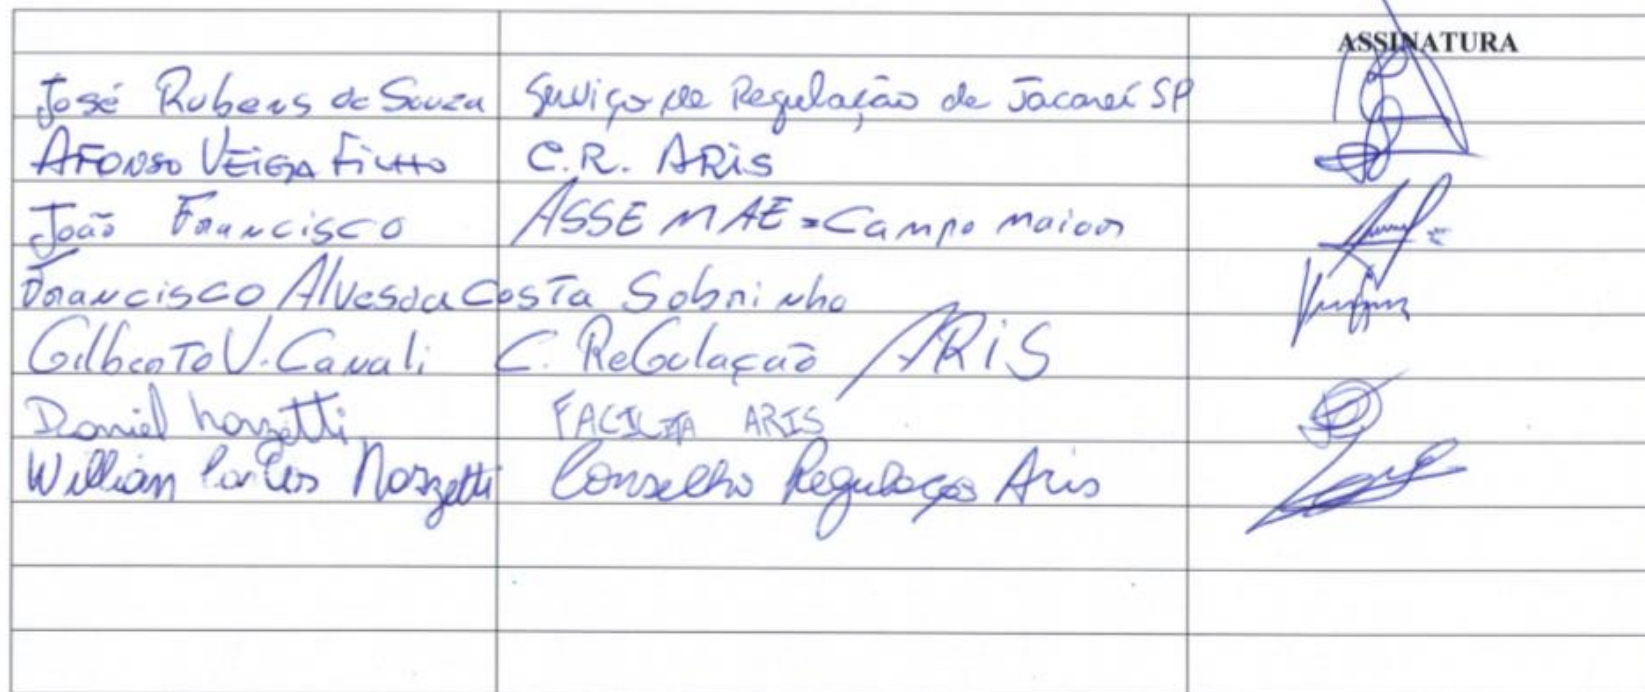 ASSINATURA
José Rubens de Souza Serviço de Regulação de Jacareí SP
AFONSO VEIGA FILHO C.R. ARIS
João Francisco ASSEMAE = Campo Maior
Francisco Alves da Costa Sobrinho
Gilberto V. Canali C. ReGulação ARIS
Daniel FACILITA ARIS
Willian Carlos Conselho Regulaçao Aris